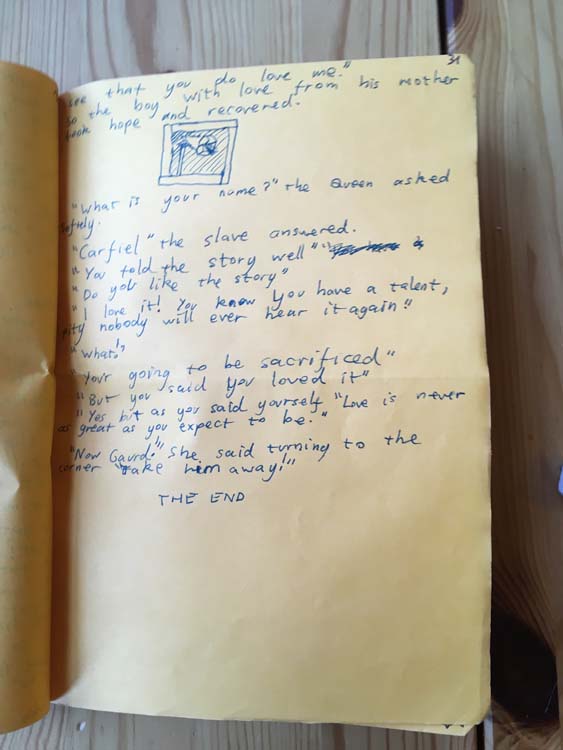 31
see that you do love me."
So the boy with love from his mother
took hope and recovered.
"What is your name?" the Queen asked
softely.
"Carfiel" the slave answered.
"You told the story well"
"Do you like the story"
"I love it! You know you have a talent,
pity nobody will ever hear it again!"
"What!?
"Your going to be sacrificed"
"But you said you loved it"
"Yes bit as you said yourself "Love is never
as great as you expect to be."
"Now Gaurd!" She said turning to the
corner "Take him away!"
THE END